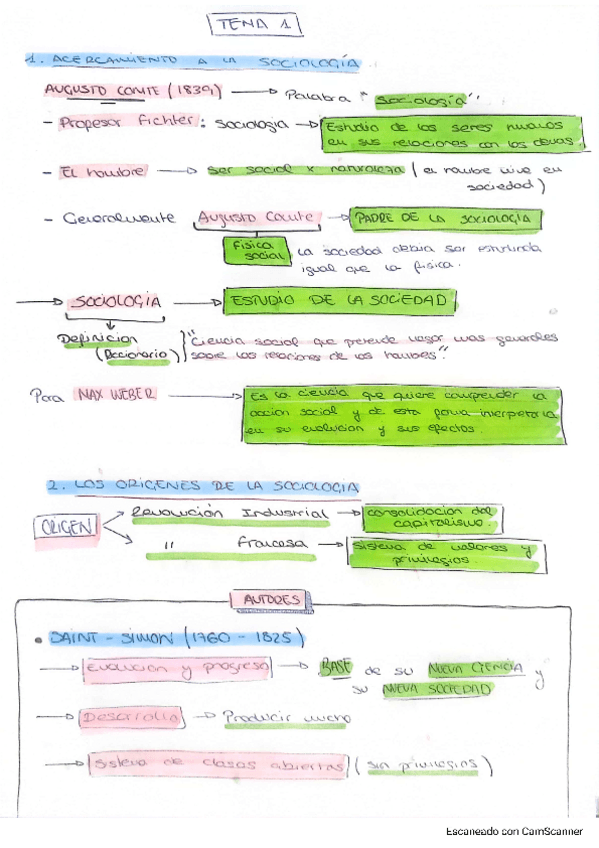 TEMA 1
1. ACERCAMIENTO A LA SOCIOLOGÍA
AUGUSTO COMTE (1839) → Palabra "sociología"
- Profesor Fichter: sociologia → Estudio de los seres humanos
en sus relaciones con los demas.
- El hombre → ser social x naturaleza (el hombre vive en
sociedad)
- Generalmente Augusto Comte → PADRE DE LA SOCIOLOGÍA
Física
social
la sociedad debia ser estudiada
igual que la física.
→ SOCIOLOGÍA → ESTUDIO DE LA SOCIEDAD
Definicion
(Diccionario)
"Ciencia social que pretende llegar leyes generales
sobre las relaciones de los hombres".
Para MAX WEBER → Es la ciencia que quiere comprender la
accion social y de esta forma interpretarla
en su evolucion y sus efectos.
2. LOS ORÍGENES DE LA SOCIOLOGIA
ORIGEN
Revolución Industrial → consolidacion del
capitalismo.
" Francesa → sistema de valores y
privilegios.
AUTORES
• SAINT - SIMON (1760 - 1825)
→ Evolución y progreso → BASE de su NUEVA CIENCIA y
su NUEVA SOCIEDAD
→ Desarrollo → Producir mucho
→ Sistema de clases abiertas (sin privilegios)
Escaneado con CamScanner